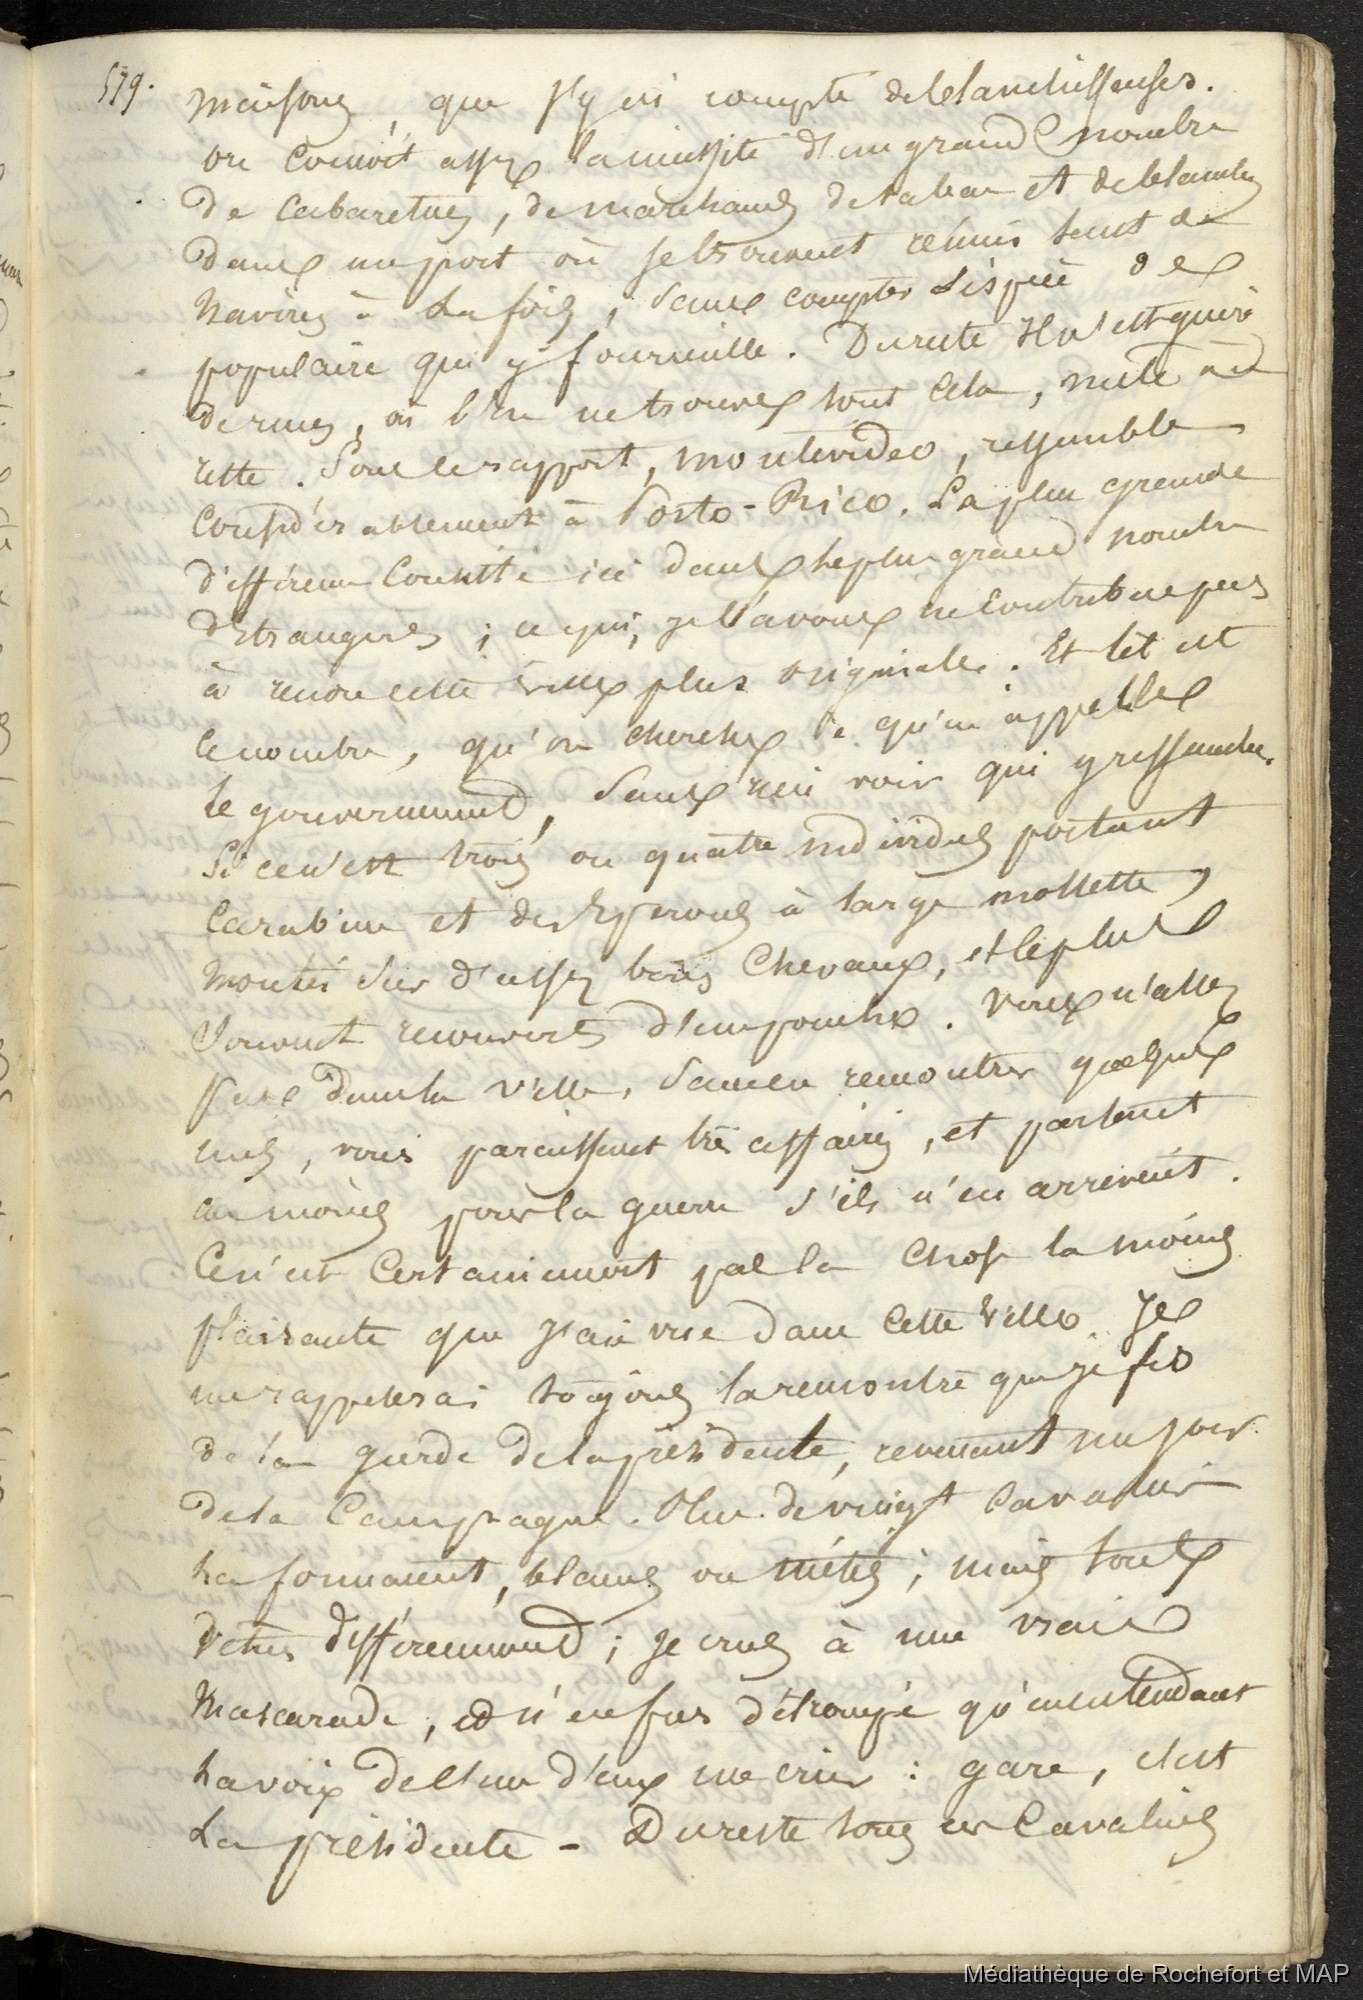 579.
maisons, que j'y ai compté de blanchisseuses.
on connoit assez la nécessité d'un grand nombre
de cabaretiers, de marchands de tabac et de
dans un port où se trouvent réunis tant de
navires à la fois, sans compter l'espèce de
populaire qui y fourmille. Du reste Il n'est guère
de rues, où l'on ne trouve tout cela,
reste. Sous le rapport, montevideo, ressemble
considérablement à Porto-Rico. La plus grande
différence consiste ici dans le plus grand nombre
d'Etrangers ; ce qui, je l'avoue ne contribue pas
à rendre cette ville plus originale. Et tel est
le nombre, qu'on cherche ce qu'on appelle
le gouvernement, sans rien voir qui y ressemble.
Si ce n'est trois ou quatre individus portant
Carabine et des Eperons à large mollette,
montés sur d'assez bons Chevaux, et le plus
souvent recouverts d'un poncho. Vous n'allez
pas dans la ville, sans en rencontrer quelques
uns, vous paraissant très affairés, et partant
au moins pour la guerre s'ils n'en arrivent.
Ce n'est Certainement pas la chose la moins
plaisante que j'aie vue dans cette ville. Je
me rappelerai toujours la rencontre que je fis
de la garde de la présidente, revenant un jour
de la Campagne. Plus de vingt cavaliers
la formaient, blancs ou métis ; mais tous
vêtus différemment ; je crus à une vraie
Mascarade, et n'en fus détrompé qu'en entendant
la voix de l'un d'eux me crier : gare, c'est
La présidente - Du reste tous ces Cavaliers
Médiathèque de Rochefort et MAP